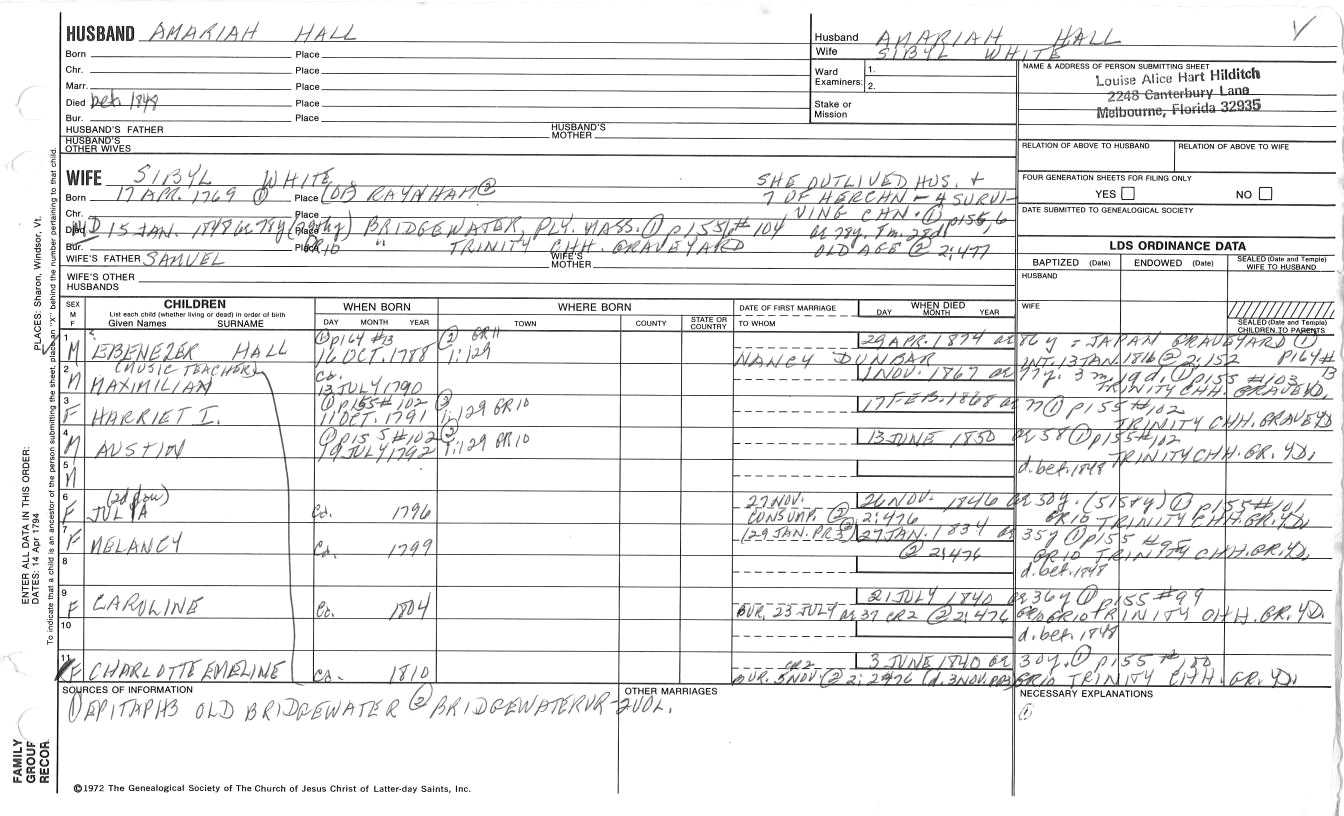 HUSBAND AMARIAH HALL
Born Place
Chr. Place
Marr. Place
Died bef. 1848 Place
Bur. Place
HUSBAND'S FATHER HUSBAND'S MOTHER
HUSBAND'S OTHER WIVES
Husband AMARIAH HALL
Wife SIBYL WHITE
Ward Examiners: 1.
2.
Stake or Mission
NAME & ADDRESS OF PERSON SUBMITTING SHEET
Louise Alice Hart Hilditch
2248 Canterbury Lane
Melbourne, Florida 32935
RELATION OF ABOVE TO HUSBAND RELATION OF ABOVE TO WIFE
FOUR GENERATION SHEETS FOR FILING ONLY
YES NO
DATE SUBMITTED TO GENEALOGICAL SOCIETY
WIFE SIBYL WHITE SHE OUTLIVED HUS. +
Born 17 APR. 1769 ① Place OB RAYNHAM ② 7 OF HER CHN - 4 SURVI-
Chr. Place VING CHN. ① p155,6
Died 15 JAN. 1848 Place BRIDGEWATER, PLY. MASS. ① p155 #104 78y. 7m. 28d
Bur. Place GR10 " TRINITY CHH. GRAVEYARD OLD AGE ② 2:477
WIFE'S FATHER SAMUEL WIFE'S MOTHER
WIFE'S OTHER HUSBANDS
LDS ORDINANCE DATA
BAPTIZED (Date) ENDOWED (Date) SEALED (Date and Temple) WIFE TO HUSBAND
HUSBAND
WIFE
SEALED (Date and Temple) CHILDREN TO PARENTS
SEX M F
CHILDREN
List each child (whether living or dead) in order of birth
Given Names SURNAME
WHEN BORN DAY MONTH YEAR
WHERE BORN TOWN COUNTY STATE OR COUNTRY
DATE OF FIRST MARRIAGE TO WHOM
WHEN DIED DAY MONTH YEAR
1 ① p164 #13 ② GR11 29 APR. 1874 86y - JAPAN GRAVEYARD ①
M EBENEZER HALL 16 OCT. 1788 1:129 NANCY DUNBAR INT. 13 JAN. 1816 ② 2:152 p164 #13
2 (MUSIC TEACHER) Ca. 1 NOV. 1867 77y. 3m. 19d. ① p155 #103
M MAXIMILIAN 13 JULY 1790 TRINITY CHH. GRAVEYD.
3 ① p155 #102 ② 17 FEB. 1868 77 ① p155 #102
F HARRIET I. 11 OCT. 1791 1:129 GR10 TRINITY CHH. GRAVEYD
4 ① p155 #102 ② 13 JUNE 1850 58 ① p155 #102
M AUSTIN 19 JULY 1792 1:129 GR10 TRINITY CHH. GR. YD.
5
M d. bef. 1848
6 27 NOV. 26 NOV. 1846 50y. (51 sty) ① p155 #101
F JULIA Ca. 1796 CONSUMP. ② 2:476 GR10 TRINITY CHH. GR. YD.
7 (29 JAN. PR3) ② 27 JAN. 1834 35y ① p155 #95
F MELANCY Ca. 1799 ② 2:476 GR10 TRINITY CHH. GR. YD.
8 d. bef. 1848
9 21 JULY 1840 36y ① p155 #99
F CAROLINE Ca. 1804 BUR. 23 JULY 37 CR2 ② 2:476 GR10 TRINITY CHH. GR. YD.
10 d. bef. 1848
11 CR2 3 JUNE 1840 30y. ① p155 #100
F CHARLOTTE EMELINE Ca. 1810 BUR. 5 NOV ② (d. 3 NOV. PR3) GR10 TRINITY CHH. GR. YD.
SOURCES OF INFORMATION OTHER MARRIAGES NECESSARY EXPLANATIONS
① EPITAPHS OLD BRIDGEWATER ② BRIDGEWATER VR - 2 VOL. ①
©1972 The Genealogical Society of The Church of Jesus Christ of Latter-day Saints, Inc.
ENTER ALL DATA IN THIS ORDER:
DATES: 14 Apr 1794
PLACES: Sharon, Windsor, Vt.
To indicate that a child is an ancestor of the person submitting the sheet, place an "X" behind the number pertaining to that child.
FAMILY GROUP RECOR